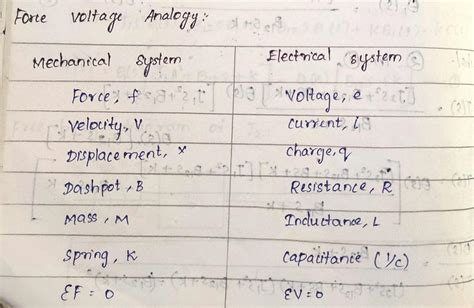 Force voltage Analogy:
Mechanical System Electrical System
Force, f voltage, e
velocity, V current, i
Displacement, x charge, q
Dashpot, B Resistance, R
Mass, M Inductance, L
Spring, K Capacitance (1/c)
ΣF = 0 ΣV = 0